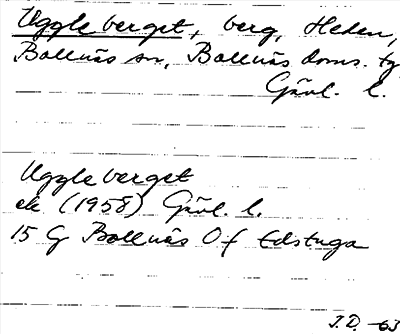 Uggleberget, berg, Heden,
Bollnäs sn, Bollnäs doms. tg
Gävl. l.
Uggleberget
ek (1958) Gävl. l.
15 G Bollnäs 0 f Edstuga
J.D. -63